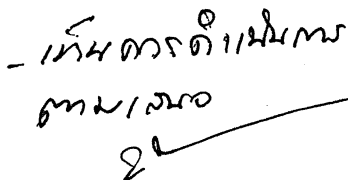 - เห็นควรดำเนินการ
ตามเสนอ